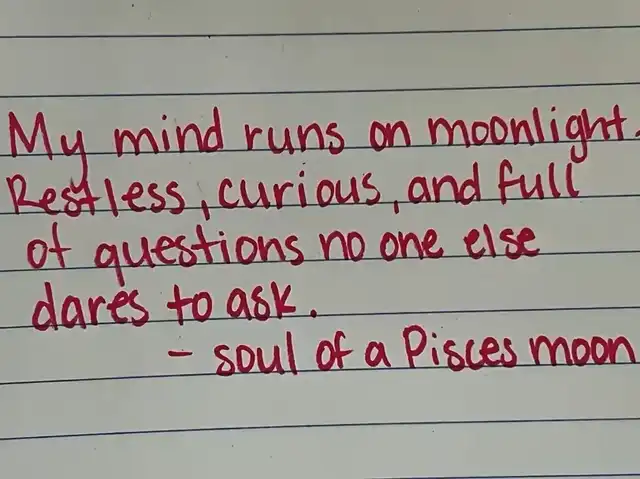 My mind runs on moonlight.
Restless, curious, and full
of questions no one else
dares to ask.
- soul of a Pisces moon